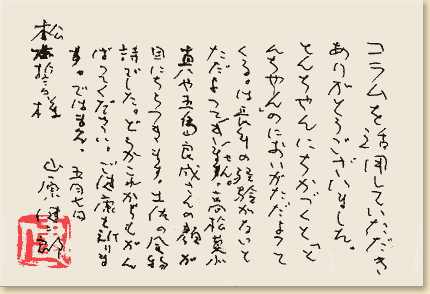 コラムを活用していただき
ありがとうございました。
とんちゃんにちかづくと「と
んちゃんのにおいがただよって
くる」は長年の経験がないと
ただよってきません。高松菓子
真八や五島良成さんの顔が
目にちらつきます。土佐の風物
詩でした。どうかこれからもがん
ばってください。ご健康を祈りま
す。ではまた。 五月七日
山原健二郎
松本 様